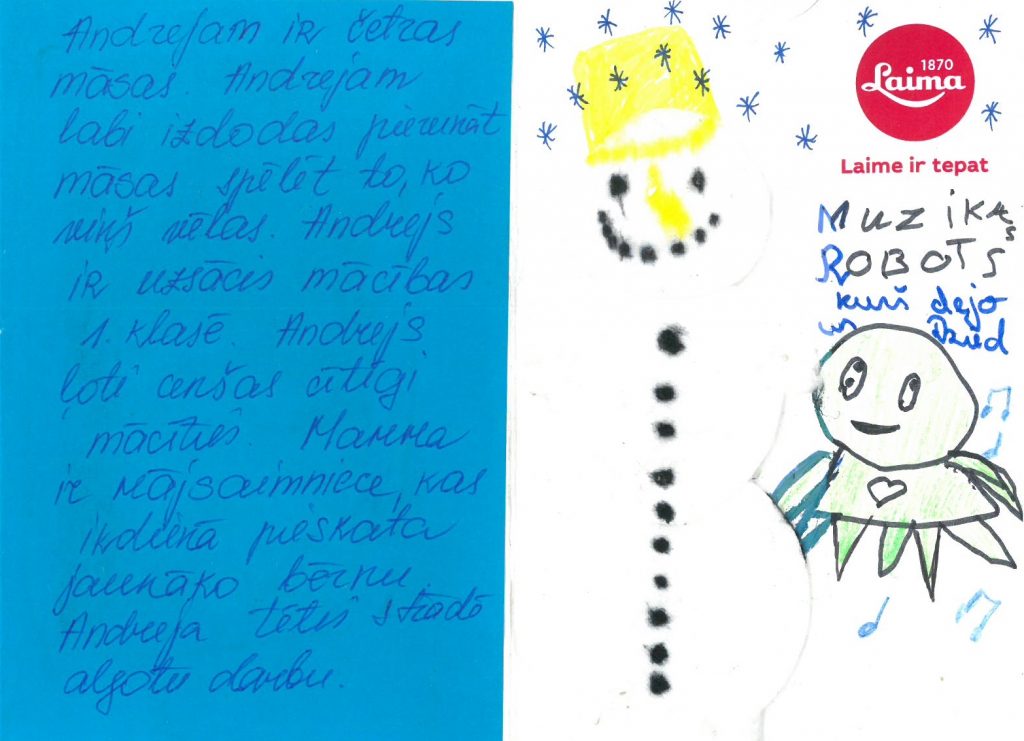 Andrejam ir četras
māsas. Andrejam
labi izdodas pierunāt
māsas spēlēt to, ko
viņš vēlas. Andrejs
ir uzsācis mācības
1. klasē. Andrejs
ļoti cenšas cītīgi
mācīties. Mamma
ir mājsaimniece, kas
ikdienā pieskata
jaunāko bērnu.
Andreja tētis strādā
algotu darbu.
1870
Laima
Laime ir tepat
MUZIKAS
ROBOTS
kurš dejo
un Dzied